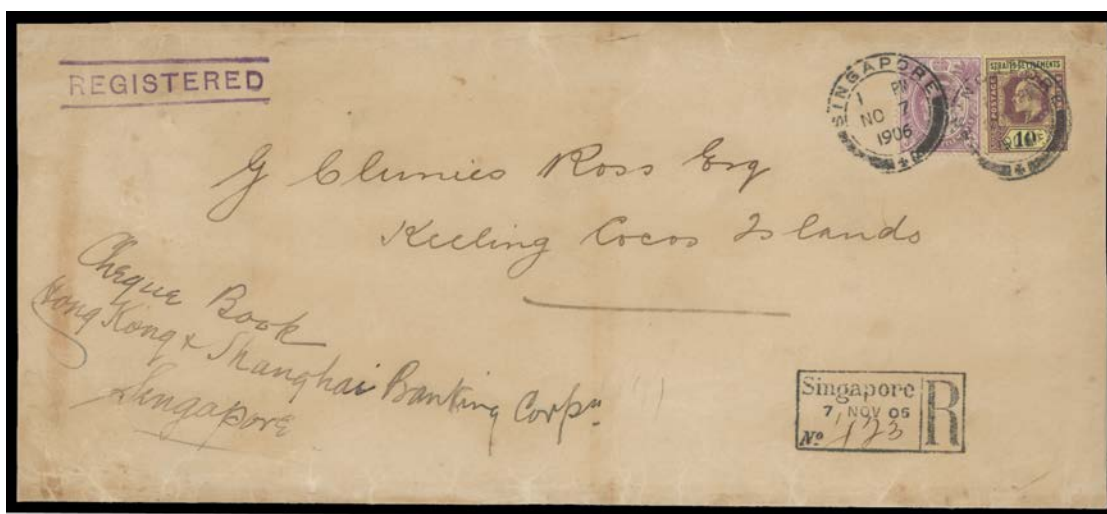 REGISTERED
SINGAPORE
1 PM
NO 7
1906
STRAITS SETTLEMENTS
POSTAGE
10
G Clunies Ross Esq
Keeling Cocos Islands
Cheque Book
Hong Kong & Shanghai Banking Corpn
Singapore
Singapore
7 NOV 06
No 123
R